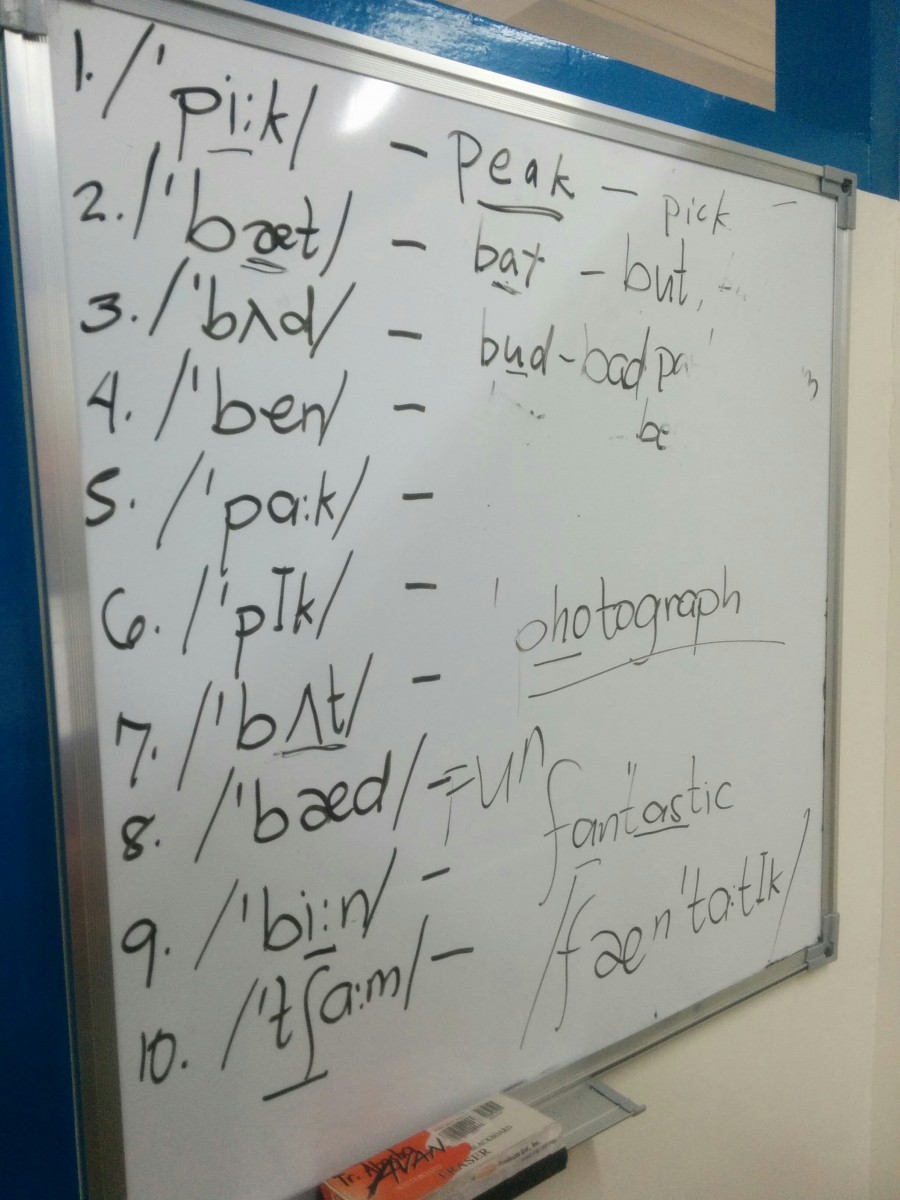 1. /'pi:k/ - peak - pick -
2. /'bæt/ - bat - but,
3. /'bʌd/ - bud - bad pa
4. /'ben/ - be
5. /'pa:k/ -
6. /'pIk/ - photograph
7. /'bʌt/ -
8. /'bæd/ - Fun
fan'tastic
9. /'bi:n/ -
/fæn'ta:tIk/
10. /'tʃa:m/ -
Tr.
ERASER